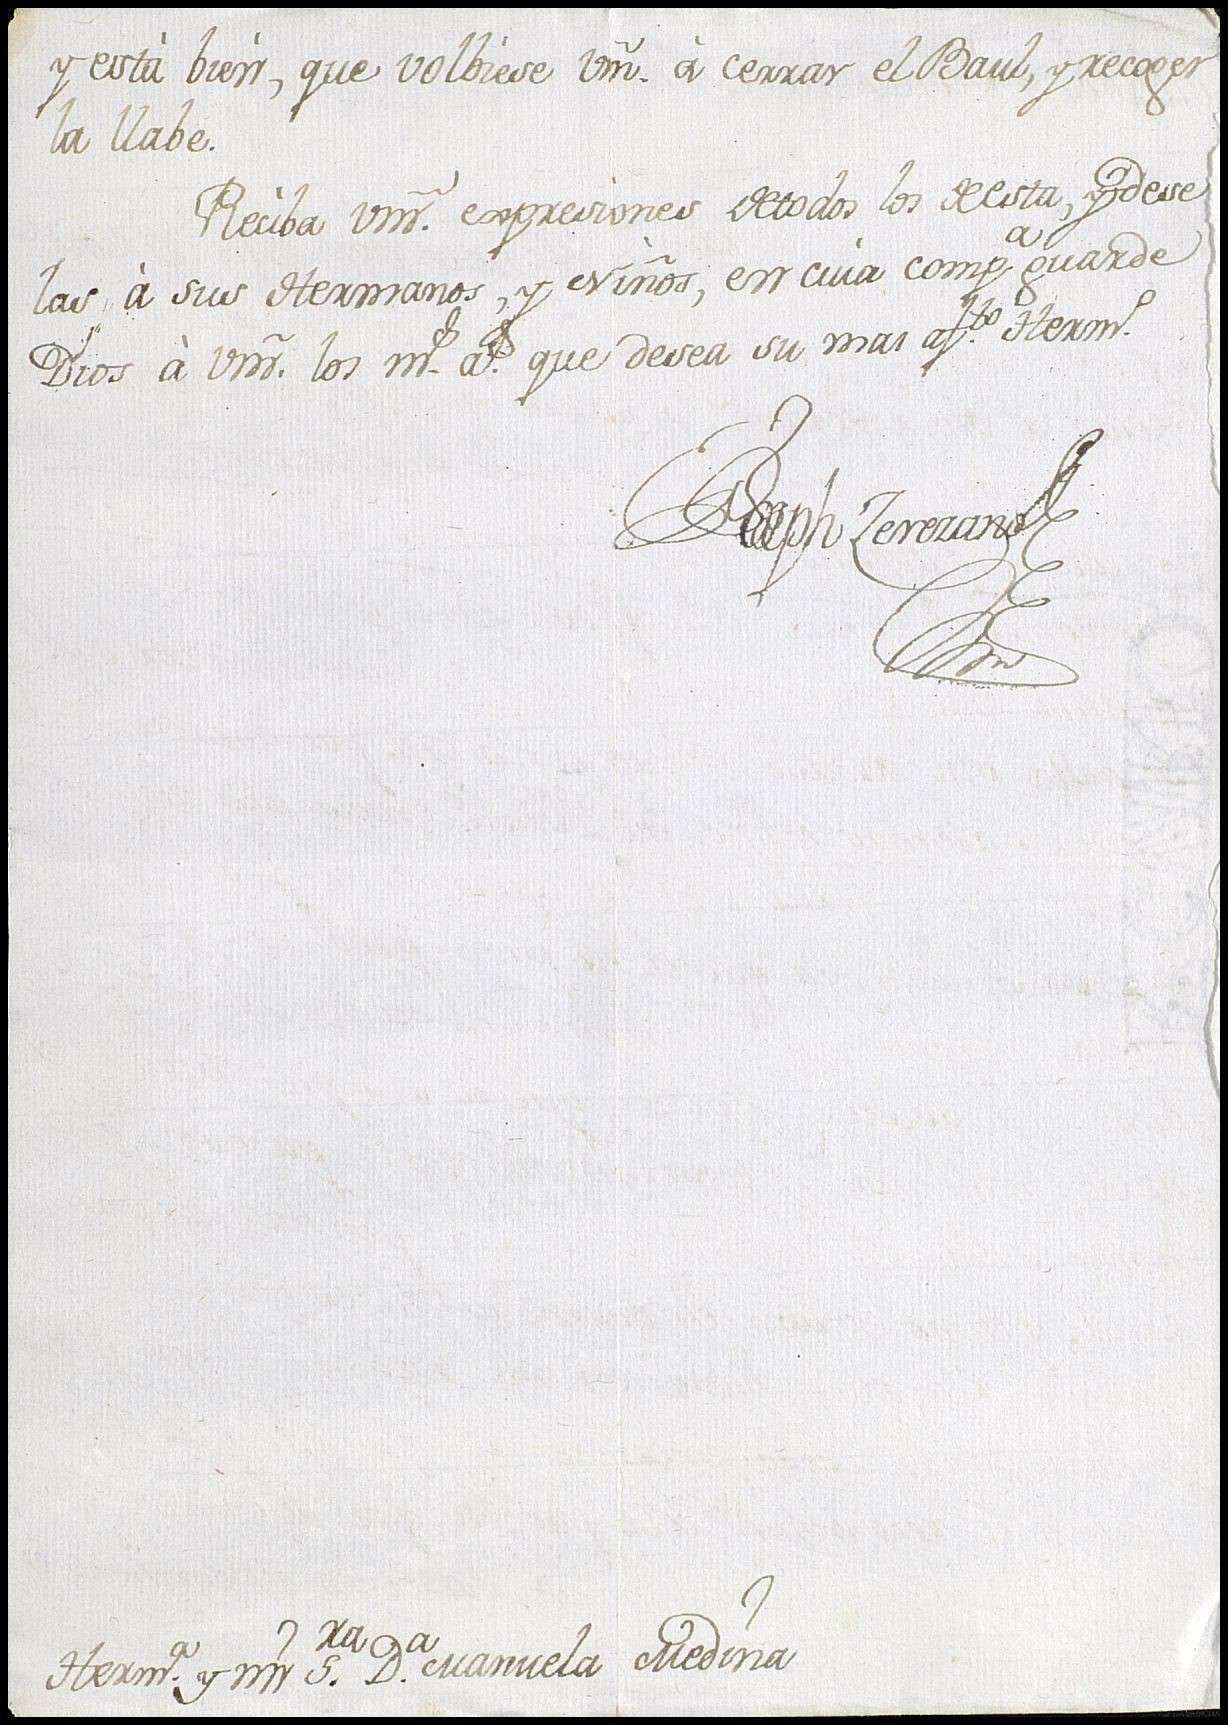 y està bien, que volbiese Vm̃. à cerrar el Baul, y recoger
la llabe.
Reciba Vm̃. expresiones de todos los de esta, y dese
las à sus Hermanos, y Niños, en cuia comp.ª guarde
Dios à Vm̃. los m.s a.s que desea su mas af.to Herm.º
Joseph Zerezano
Herm.ª y mi S.ra D.ª Manuela Medina